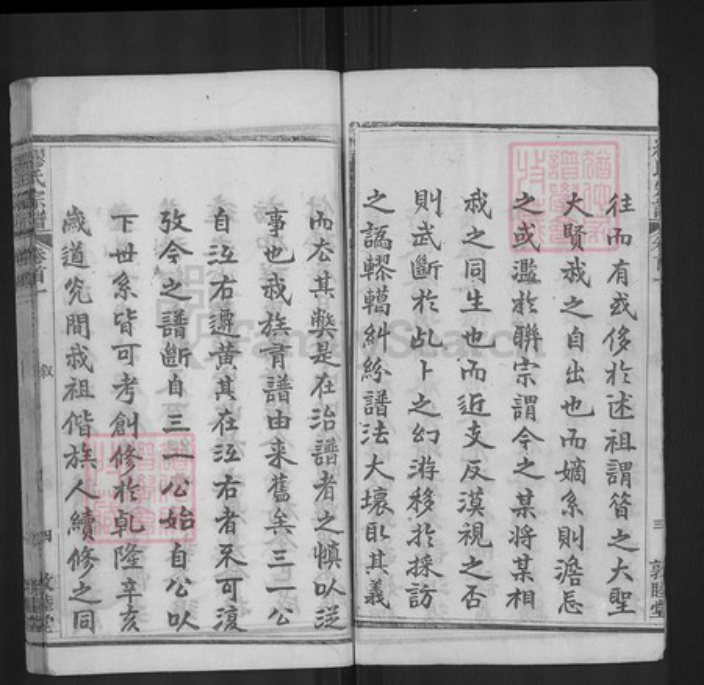 往而有或侈於述祖謂昝之大聖
大賢我之自出也而嫡系則澹忘
之或濫於聯宗謂今之某將某相
我之同生也而近支反漠視之否
則武斷於乩卜之幻游移於採訪
之譌轇轕糾紛譜法大壞取其義
而厺其獘是在治譜者之慎以逆
事也我族肯譜由来舊矣三一公
自江右遷黃其在江右者不可復
攷今之譜斷自三一公始自公以
下世系皆可考創修於乾隆辛亥
歲道光間我祖偕族人續修之同
氏宗譜
卷首一
叙
四
敦睦堂
三
敦睦堂
FamilySearch